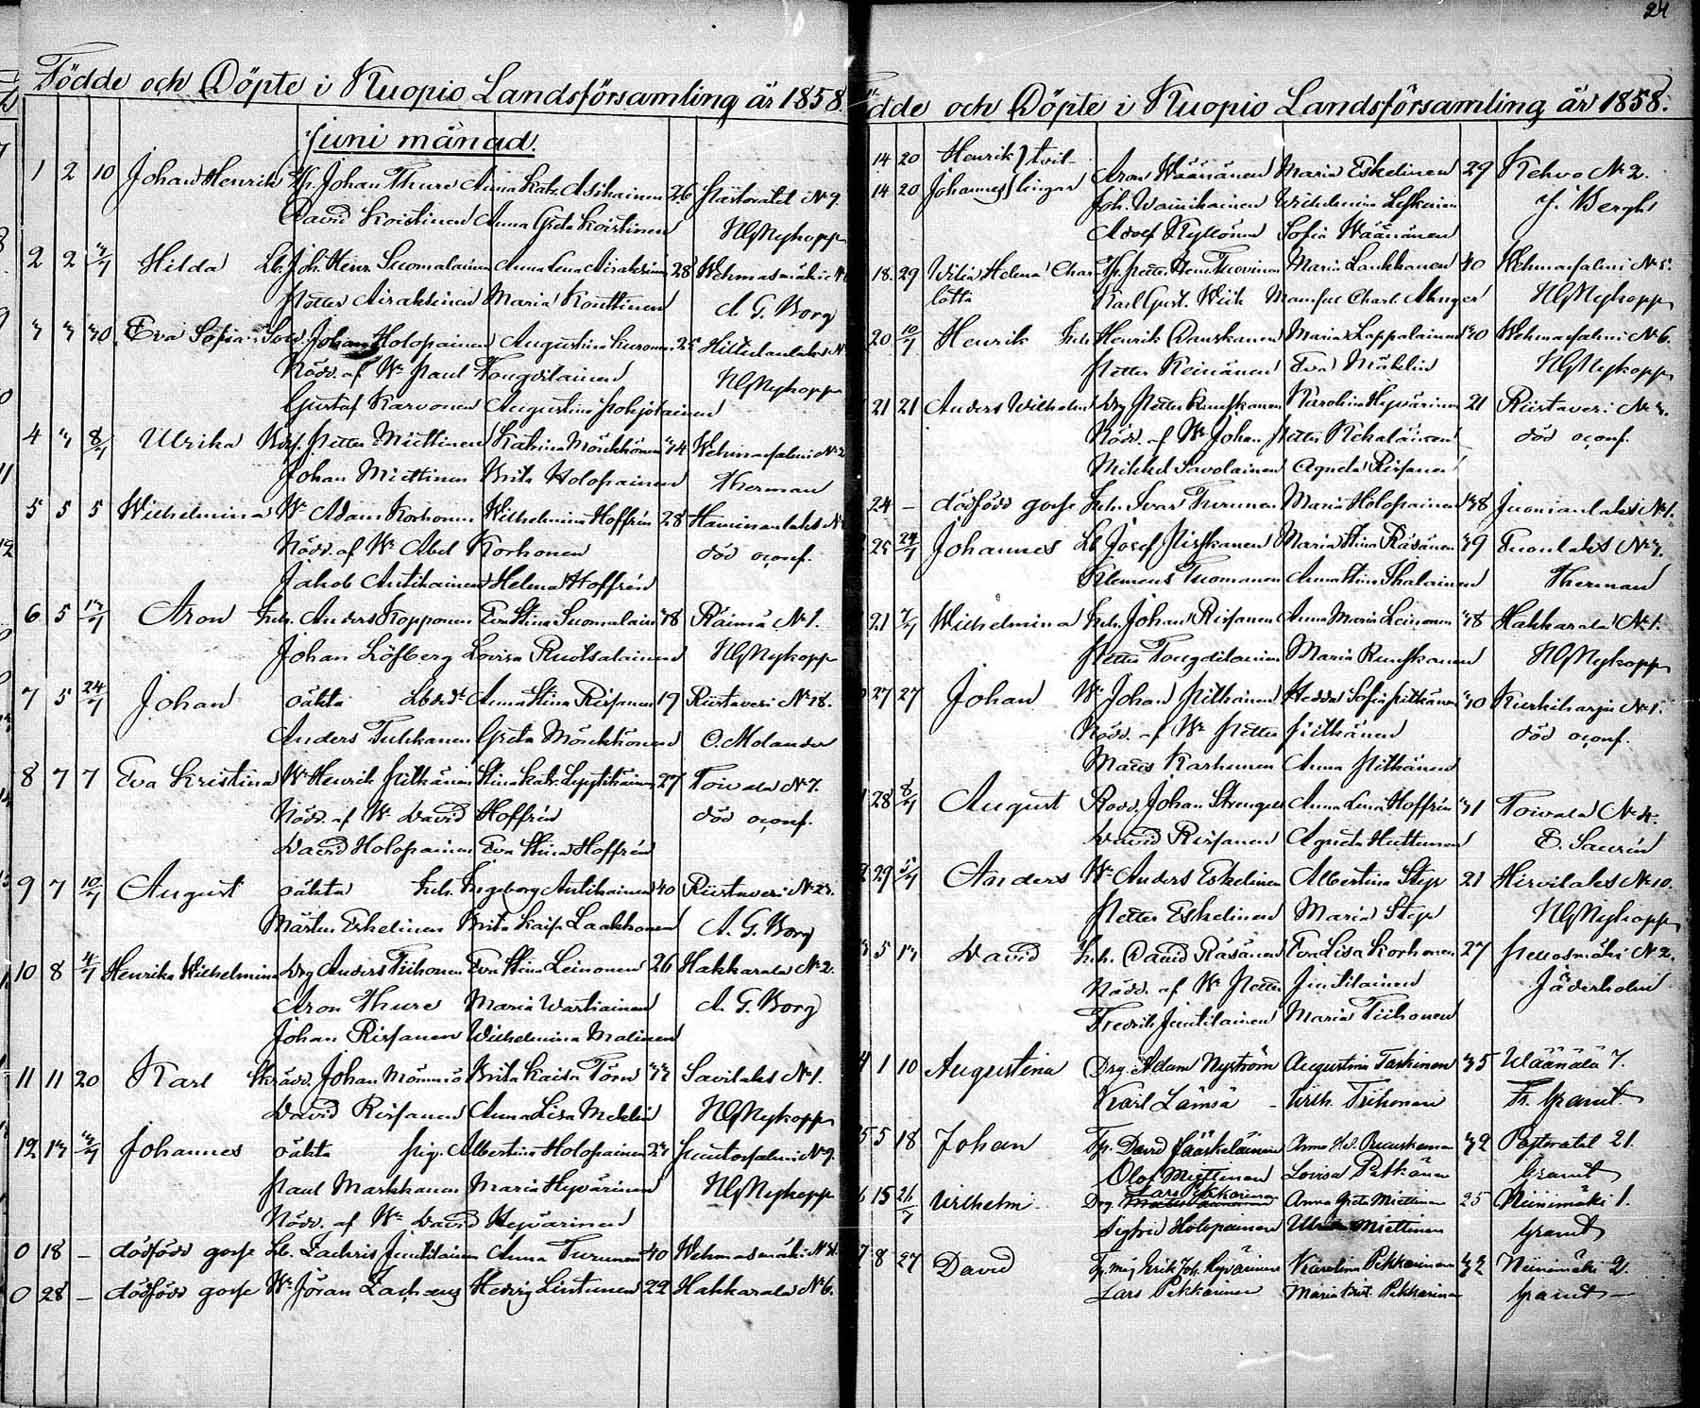 24
Födde och Döpte i Kuopio Landsförsamling år 1858.
Juni månad.
1 2 10 Johan Henrik Johan Thure Anna Katr. Asikainen 26 Pastoratet No 9.
David Koistinen Anna Greta Koistinen Nykopp
2 2 Hilda Lb. Joh. Henr. Suomalainen Anna Lena Airaksinen 28 Wehmasmäki
Petter Airaksinen Maria Konttinen A. G. Borg
3 3 30 Eva Sofia Sold. Johan Holopainen Augustina 25 Hiltulanlaks
Nöd. af Wr Paul Tougdilainen Nykopp
Gustaf Karvonen Augustina Pohjolainen
4 3 8/7 Ulrika Petter Miettinen Katrina Mönkkönen 34 Wehmasalmi No 2
Johan Miettinen Brita Holopainen Therman
5 5 5 Wilhelmina Wr Adam Korhonen Wilhelmina Hoffrén 28 Haminanlaks
Nöd. af Wr Abel Korhonen död oconf.
Jakob Antikainen Helena Hoffrén
6 5 13/7 Aron Inh. Anders Kopponen Eva Stina Suomalain 38 Räimä No 1.
Johan Löfberg Lovisa Ruotsalainen Nykopp
7 5 24/7 Johan oäkta Anna Stina Rissanen 19 Riistaveri No 18.
Anders Tukkanen Greta Mönkkönen O. Molander
8 7 7 Eva Kristina Wr Henrik Pitkänen Stina Katr. Lyytikäinen 27 Toivala No 7.
Nöd. af Wr David Hoffrén död oconf.
David Holopainen Eva Stina Hoffrén
9 7 10/7 August oäkta Inh. Ingeborg Antikainen 40 Riistaveri No 23.
Mårten Eskelinen Brita Kaisa Laakkonen A. G. Borg
10 8 4/7 Henrika Wilhelmina Drg Anders Tiihonen Eva Stina Leinonen 26 Hakkarala No 2.
Aron Thure Maria Wartiainen A. G. Borg
Johan Rissanen Wilhelmina Malinen
11 11 20 Karl Skrädd. Johan Mömmö Brita Kaisa Törn 33 Savilaks No 1.
David Rissanen Anna Lisa Nykopp
12 13 Johannes oäkta pig. Albertina Holopainen 23 Puutosalmi No 9.
Paul Markkanen Maria Hyvärinen Nykopp
Nöd. af Wr David Hyvärinen
0 18 – dödfödd gosse Lb. Zachris Juutilainen Anna Turunen 40 Wehmasmäki
0 28 – dödfödd gosse Wr Jöran Zachaeus Hedvig Lintunen 22 Hakkarala No 6.
dde och Döpte i Kuopio Landsförsamling år 1858.
14 20 Henrik } tvil- Aron Wäänänen Maria Eskelinen 29 Kehvo No 2.
14 20 Johannes } lingar Joh. Wainikainen Wilhelmina Leskinen J. Bergh
Adolf Kyllönen Sofia Wäänänen
18. 29 Helena Char- Petter Henr. Tuovinen Maria Laukkanen 40 Wehmasalmi No 5.
lotta Karl Gust. Wiik Mamsel Charl. Munger Nykopp
20 10/7 Henrik Inh. Henrik Danskanen Maria Lappalainen 30 Wehmasalmi No 6.
Petter Reinänen Eva Mäkelin Nykopp
21 21 Anders Wilhelm Drg Petter Karolina Hyvärinen 21 Riistaveri No 3.
Nöd. af Wr Johan Petter Rekoläinen död oconf.
Mikkel Savolainen Agneta Rissanen
24 – dödfödd gosse Inh. Ivar Turunen Maria Holopainen 38 Juonianlaks No 1.
25 24/7 Johannes Lb Josef Miskanen Maria Stina Räsänen 39 Tuonlaks No 3.
Klemens Tuomanen Anna Stina Ihalainen Therman
21 Wilhelmina Inh. Johan Rissanen Anna Maria Leinonen 38 Hakkarala No 1.
Petter Tougdilainen Maria Nykopp
27 27 Johan Wr Johan Pitkänen Hedda Sofia Pitkänen 30 Kurkiharju No 1.
Nöd. af Wr Petter Pitkänen död oconf.
Mats Karhunen Anna Pitkänen
28 8/7 August Johan Strengell Anna Lena Hoffrén 31 Toivala No 4.
David Rissanen Agneta Huttunen E. Saurén
29 Anders Wr Anders Eskelinen Albertina Step 21 Hirvilaks No 10.
Petter Eskelinen Maria Step Nykopp
5 13 David Inh. David Räsänen Eva Lisa Korhonen 27 Neuosmäki No 2.
Nöd. af Wr Petter Juutilainen Jäderholm
Fredrik Juutilainen Maria Tiihonen
4 1 10 Augustina Drg. Adam Nyström Augustina Taskinen 35 Wäänälä 7.
Karl Lämsä Wilh. Tiihonen Fr. Granit.
5 5 18 Johan David Jääskeläinen Anna Hd. Ruuskanen 32 Pastoratet 21.
Olof Miettinen Lovisa Pitkänen Granit
6 15 26/7 Wilhelm Drg. Lars Pekkarinen Anna Greta Miettinen 25 Niinimäki 1.
Sigfrid Holopainen Miettinen Granit
7 8 27 David Erik Joh. Hyvärinen Karolina Pekkarinen 32 Niinimäki 2.
Lars Pekkarinen Maria Krist. Pekkarinen Granit